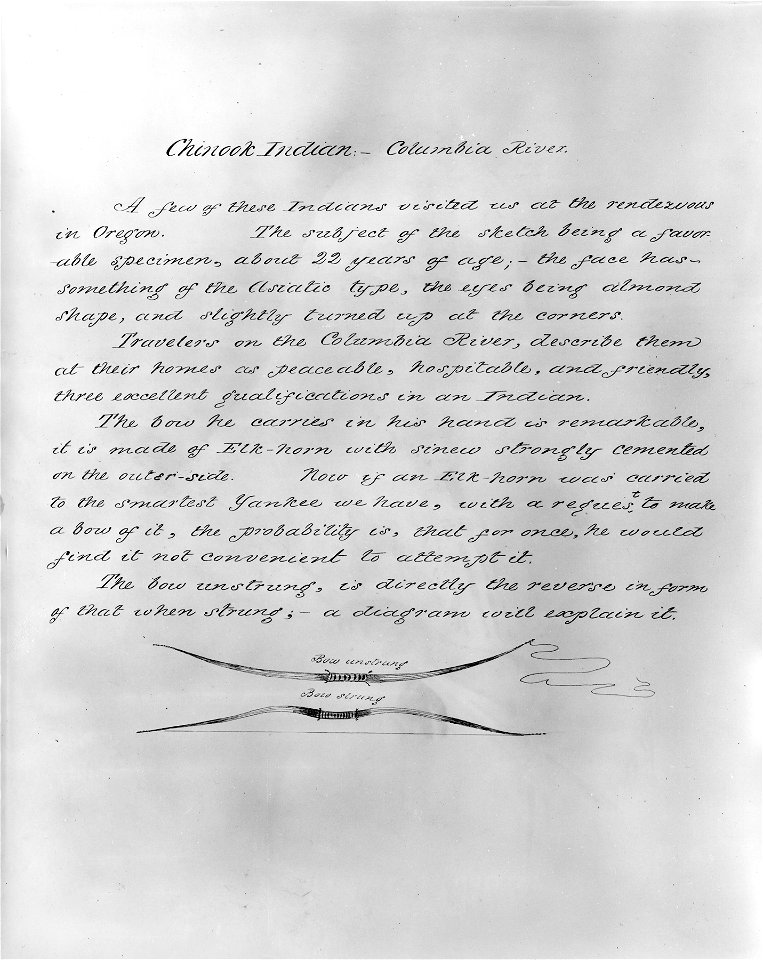 Chinook Indian:- Columbia River.
A few of these Indians visited us at the rendezvous
in Oregon. The subject of the sketch being a favor-
-able specimen, about 22 years of age; - the face has-
something of the Asiatic type, the eyes being almond
shape, and slightly turned up at the corners.
Travelers on the Columbia River, describe them
at their homes as peaceable, hospitable, and friendly,
three excellent qualifications in an Indian.
The bow he carries in his hand is remarkable,
it is made of Elk-horn with sinew strongly cemented
on the outer-side. Now if an Elk-horn was carried
to the smartest Yankee we have, with a request to make
a bow of it, the probability is, that for once, he would
find it not convenient to attempt it.
The bow unstrung, is directly the reverse in form
of that when strung; - a diagram will explain it.
Bow unstrung
Bow strung